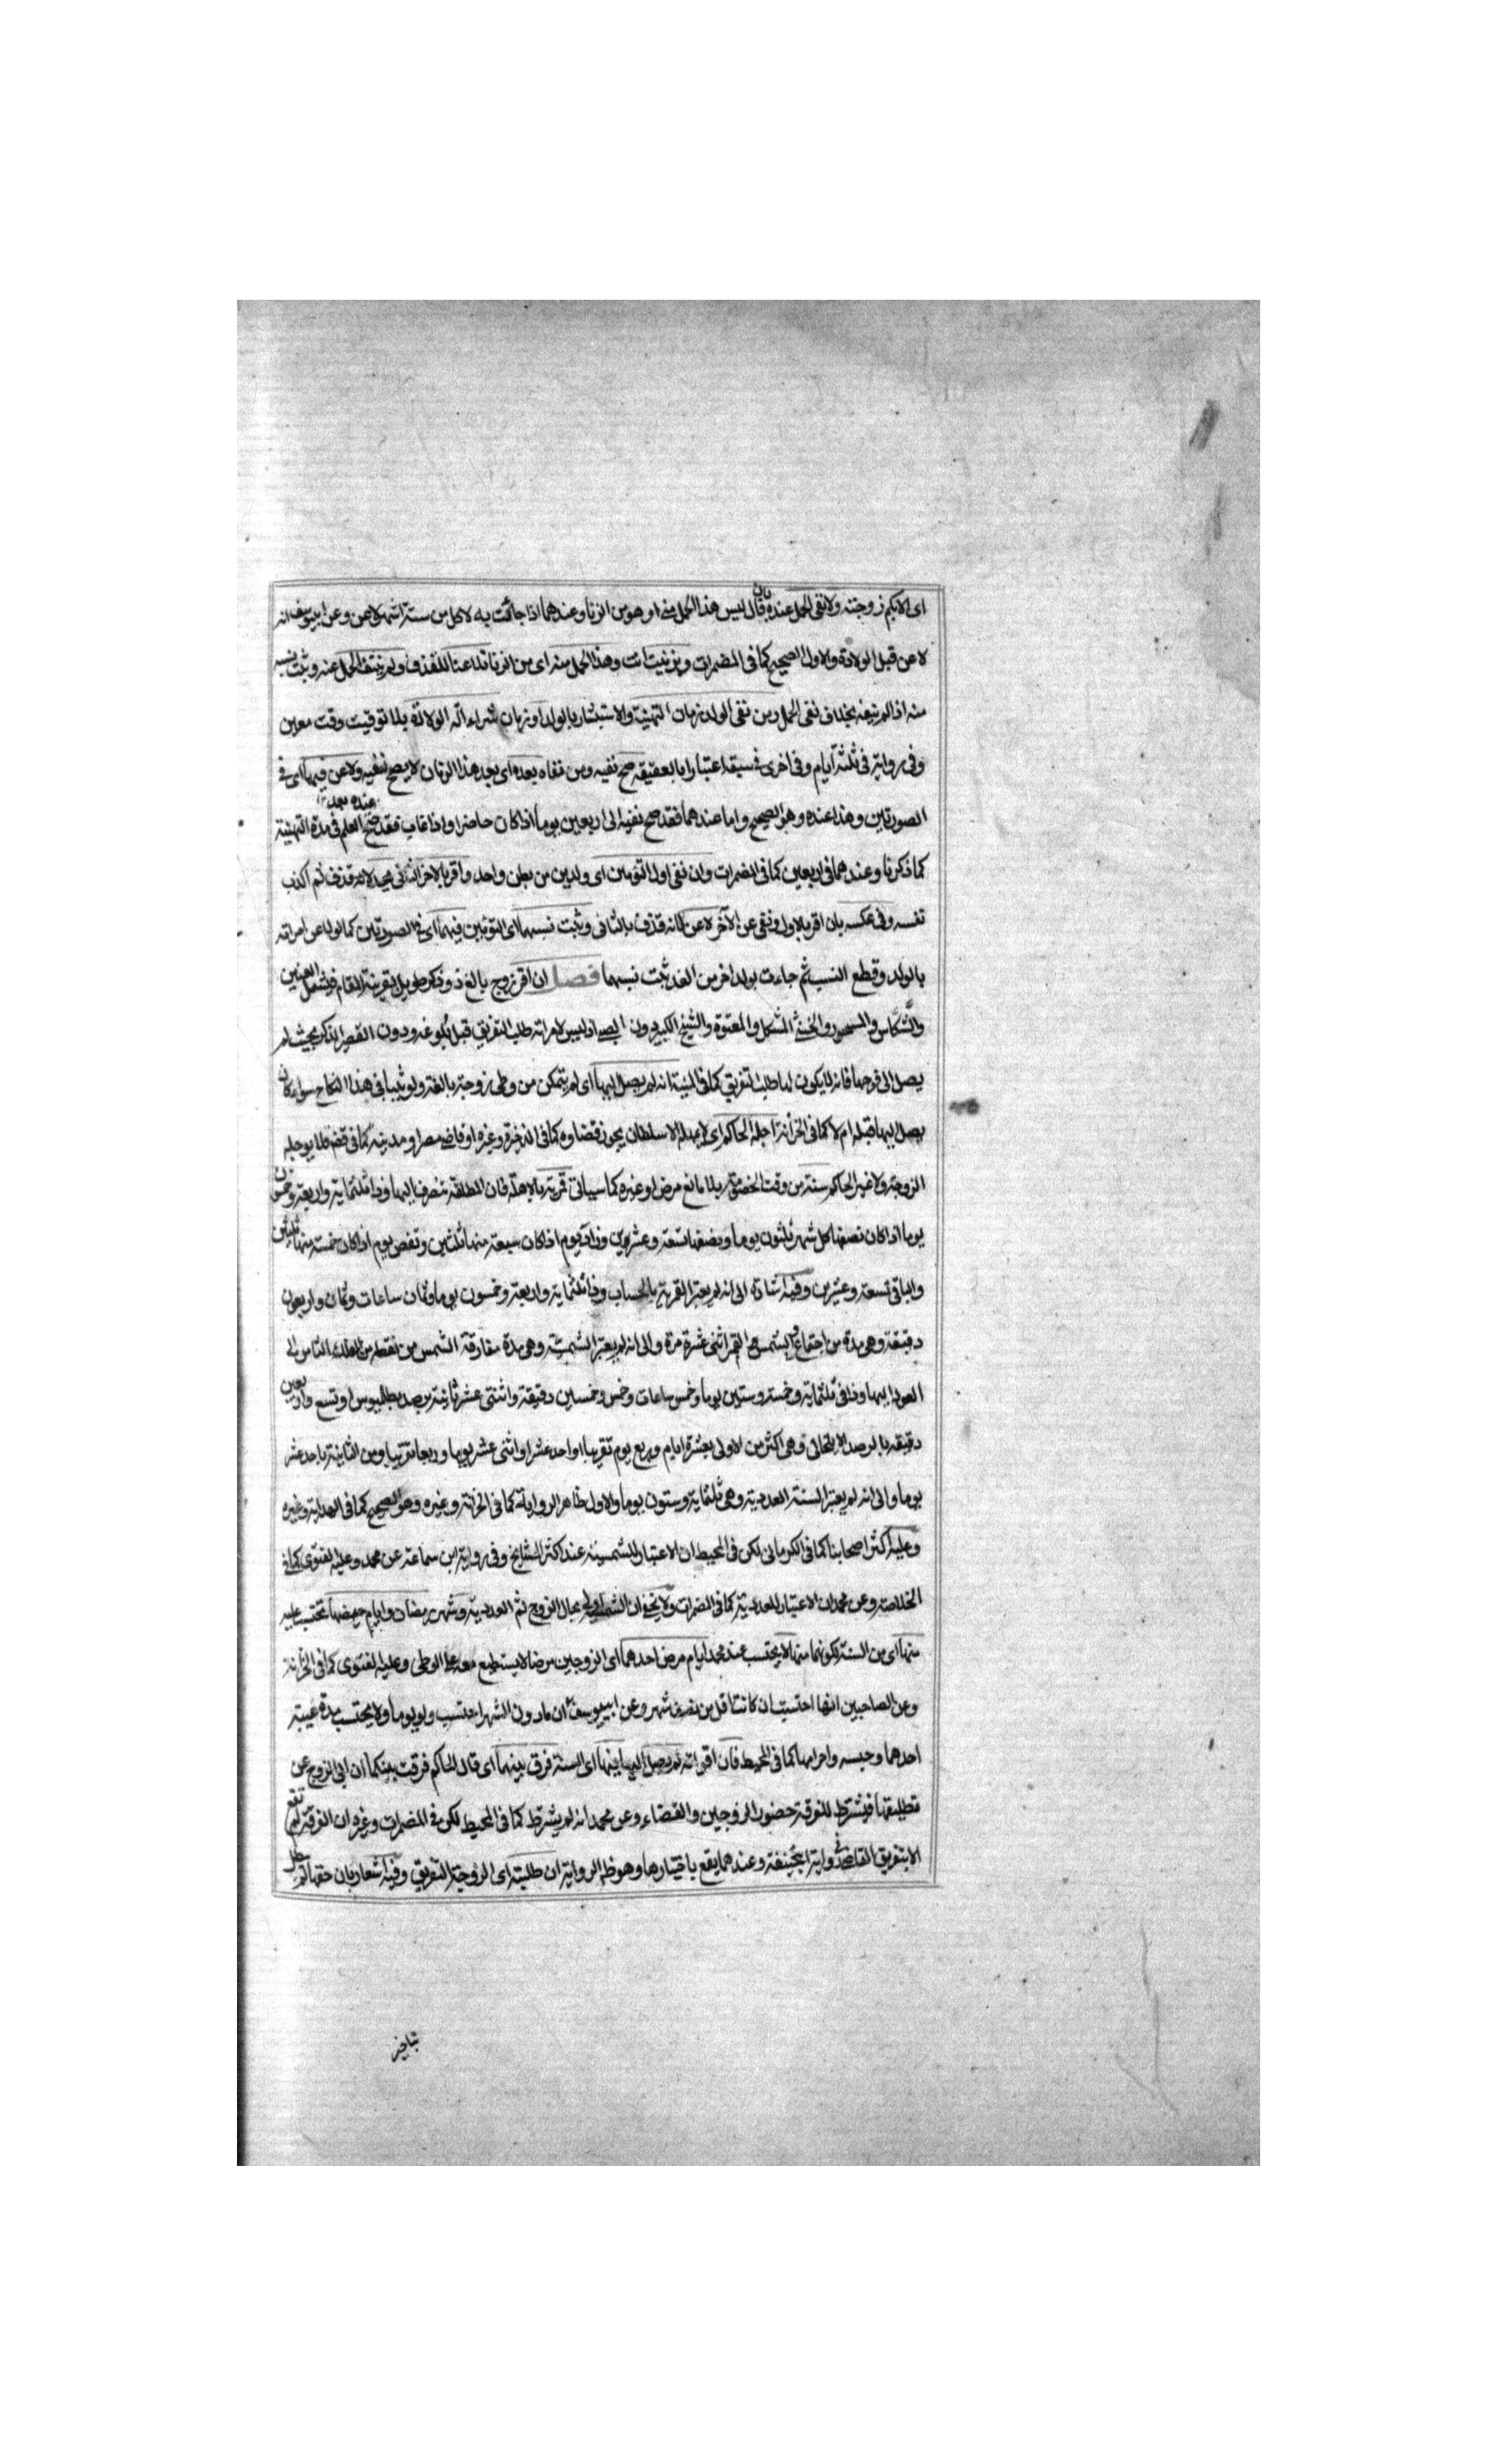 اى الابكم زوجته ولا نفى الحمل عنده بان قال ليس هذا الحمل منى او هو من الزنا وعندهما اذا جاءت به لاقل من ستة اشهر لاعن وعن ابى يوسف انه
لاعن قبل الولادة والاول الصحيح كما فى المضمرات وبزنيت انت وهذا الحمل منه اى من الزنا تلاعنا للقذف ولم ينتف الحمل عنه وثبت نسبه
منه اذا لم ينفه بخلاف نفى الحمل ومن نفى الولد زمان التهنية والاستبشار بالولد او زمان شراء آلة الولادة بلا توقيت وقت معين
وفى رواية فى ثلثة ايام وفى اخرى فى سبعة اعتبارا بالعقيقة صح نفيه ومن نفاه بعده اى بعد هذا الزمان لا يصح نفيه ولاعن فيهما اى فى
الصورتين وهذا عنده وهو الصحيح واما عندهما فقد صح نفيه الى اربعين يوما اذا كان حاضرا واذا غاب فقد صح عنده بعد العلم فى مدة التهنية
كما ذكرنا وعندهما فى اربعين كما فى المضمرات وان نفى اول التوءمين اى ولدين من بطن واحد واقر بالاخر الثانى يحد لانه قذف ثم اكذب
نفسه وفى عكسه بان اقر بالاول ونفى عن الآخر لاعن لانه قذف بالثانى وثبت نسبهما اى التوءمين فيهما اى فى الصورتين كما لو لاعن امراته
بالولد وقطع النسب ثم جاءت بولد اخر من الغد ثبت نسبهما فصل ان اقر زوج بالغ ذو ذكر طويل بقرينة المقام فيشمل العنين
والشكاس والمسحور والخنثى المشكل والمعتوه والشيخ الكبير دون الصبى اذ ليس لامراته طلب التفريق قبل بلوغه ودون القصير الذكر بحيث لم
يصل الى فرجها فانه لا يكون لها طلب التفريق كما فى المنية انه لم يصل اليها اى لم يتمكن من وطى زوجته بالغة ولو ثيبا فى هذا النكاح سواء كان
يصل اليها قبله ام لا كما فى الخزانة اجله الحاكم اى لا يمهله الا سلطان يجوز قضاوه كما فى الذخيرة وغيره او قاضى مصر او مدينة كما فى قضه فلا يوجله
الزوجة ولا غير الحاكم سنة من وقت الخصومة بلا مانع مرض او غيره كما سياتى قمرية بالاهلة فان المطلقة تنصرف اليها وذا ثلثماية واربعة وخمسون
يوما اذا كان نصفها كل شهر ثلثون يوما ونصفها تسعة وعشرين وزاد يوم اذا كان سبعة منها ثلثين ونقص يوم اذا كان خمسة منها ثلثين
والباقى تسعة وعشرين وفيه اشارة الى انه لم يعتبر القمرية بالحساب وذا ثلثماية واربعة وخمسون يوما وثمان ساعات وثمان واربعون
دقيقة وهى مدة من اجتماع الشمس والقمر اثنى عشرة مرة والى انه لم يعتبر الشمسية وهى مدة مفارقة الشمس من نقطة من الفلك الثامن الى
العود اليها وذا فى ثلثماية وخمسة وستين يوما وخمس ساعات وخمس وخمسين دقيقة واثنتى عشر ثانية برصد بطلميوس او تسع واربعين
دقيقة بالرصد الايلخانى وهى اكثر من الاولى بعشرة ايام وربع يوم تقريبا او احد عشر او اثنى عشر يوما وربعا تقريبا ومن الثانية باحد عشر
يوما والى انه لم يعتبر السنة العددية وهى ثلثماية وستون يوما والاول ظاهر الرواية كما فى الخزانة وغيره وهو الصحيح كما فى الهداية وغيره
وعليه اكثر اصحابنا كما فى الكرمانى لكن فى المحيط ان الاعتبار للشمسية عند اكثر المشايخ وفى رواية ابن سماعة عن محمد وعليه الفتوى كما فى
الخلاصة وعن محمد ان الاعتبار للعددية كما فى المضمرات ولا يخفى ان الشمسى اولى بحال الزوج ثم العددية وشهر رمضان وايام حيضها تحتسب عليه
منها اى من السنة لكونها منها لا يحتسب عند محمد ايام مرض احدهما اى الزوجين مرضا لا يستطيع معه على الوطى وعليه الفتوى كما فى الخزانة
وعن الصاحبين انها احتسبت ان كانت اقل من نصف شهر وعن ابى يوسف ان ما دون الشهر احتسب ولو يوما ولا يحتسب مدة غيبة
احدهما وحبسه واحرامها كما فى المحيط فان اقر انه لم يصل اليها فيها اى السنة فرق بينهما اى قال الحاكم فرقت بينكما ان ابى الزوج عن
تطليقها فيشترط للفرقة حضور الزوجين والقضاء وعن محمد انه لم يشترط كما فى المحيط لكن فى المضمرات وغيره ان الفرقة لم تقع
الا بتفريق القاضى فى رواية ابى حنيفة وعندهما يقع باختيارها وهو ظاهر الرواية ان طلبته اى الزوجة التفريق وفيه اشعار بان حقها لم يبطل